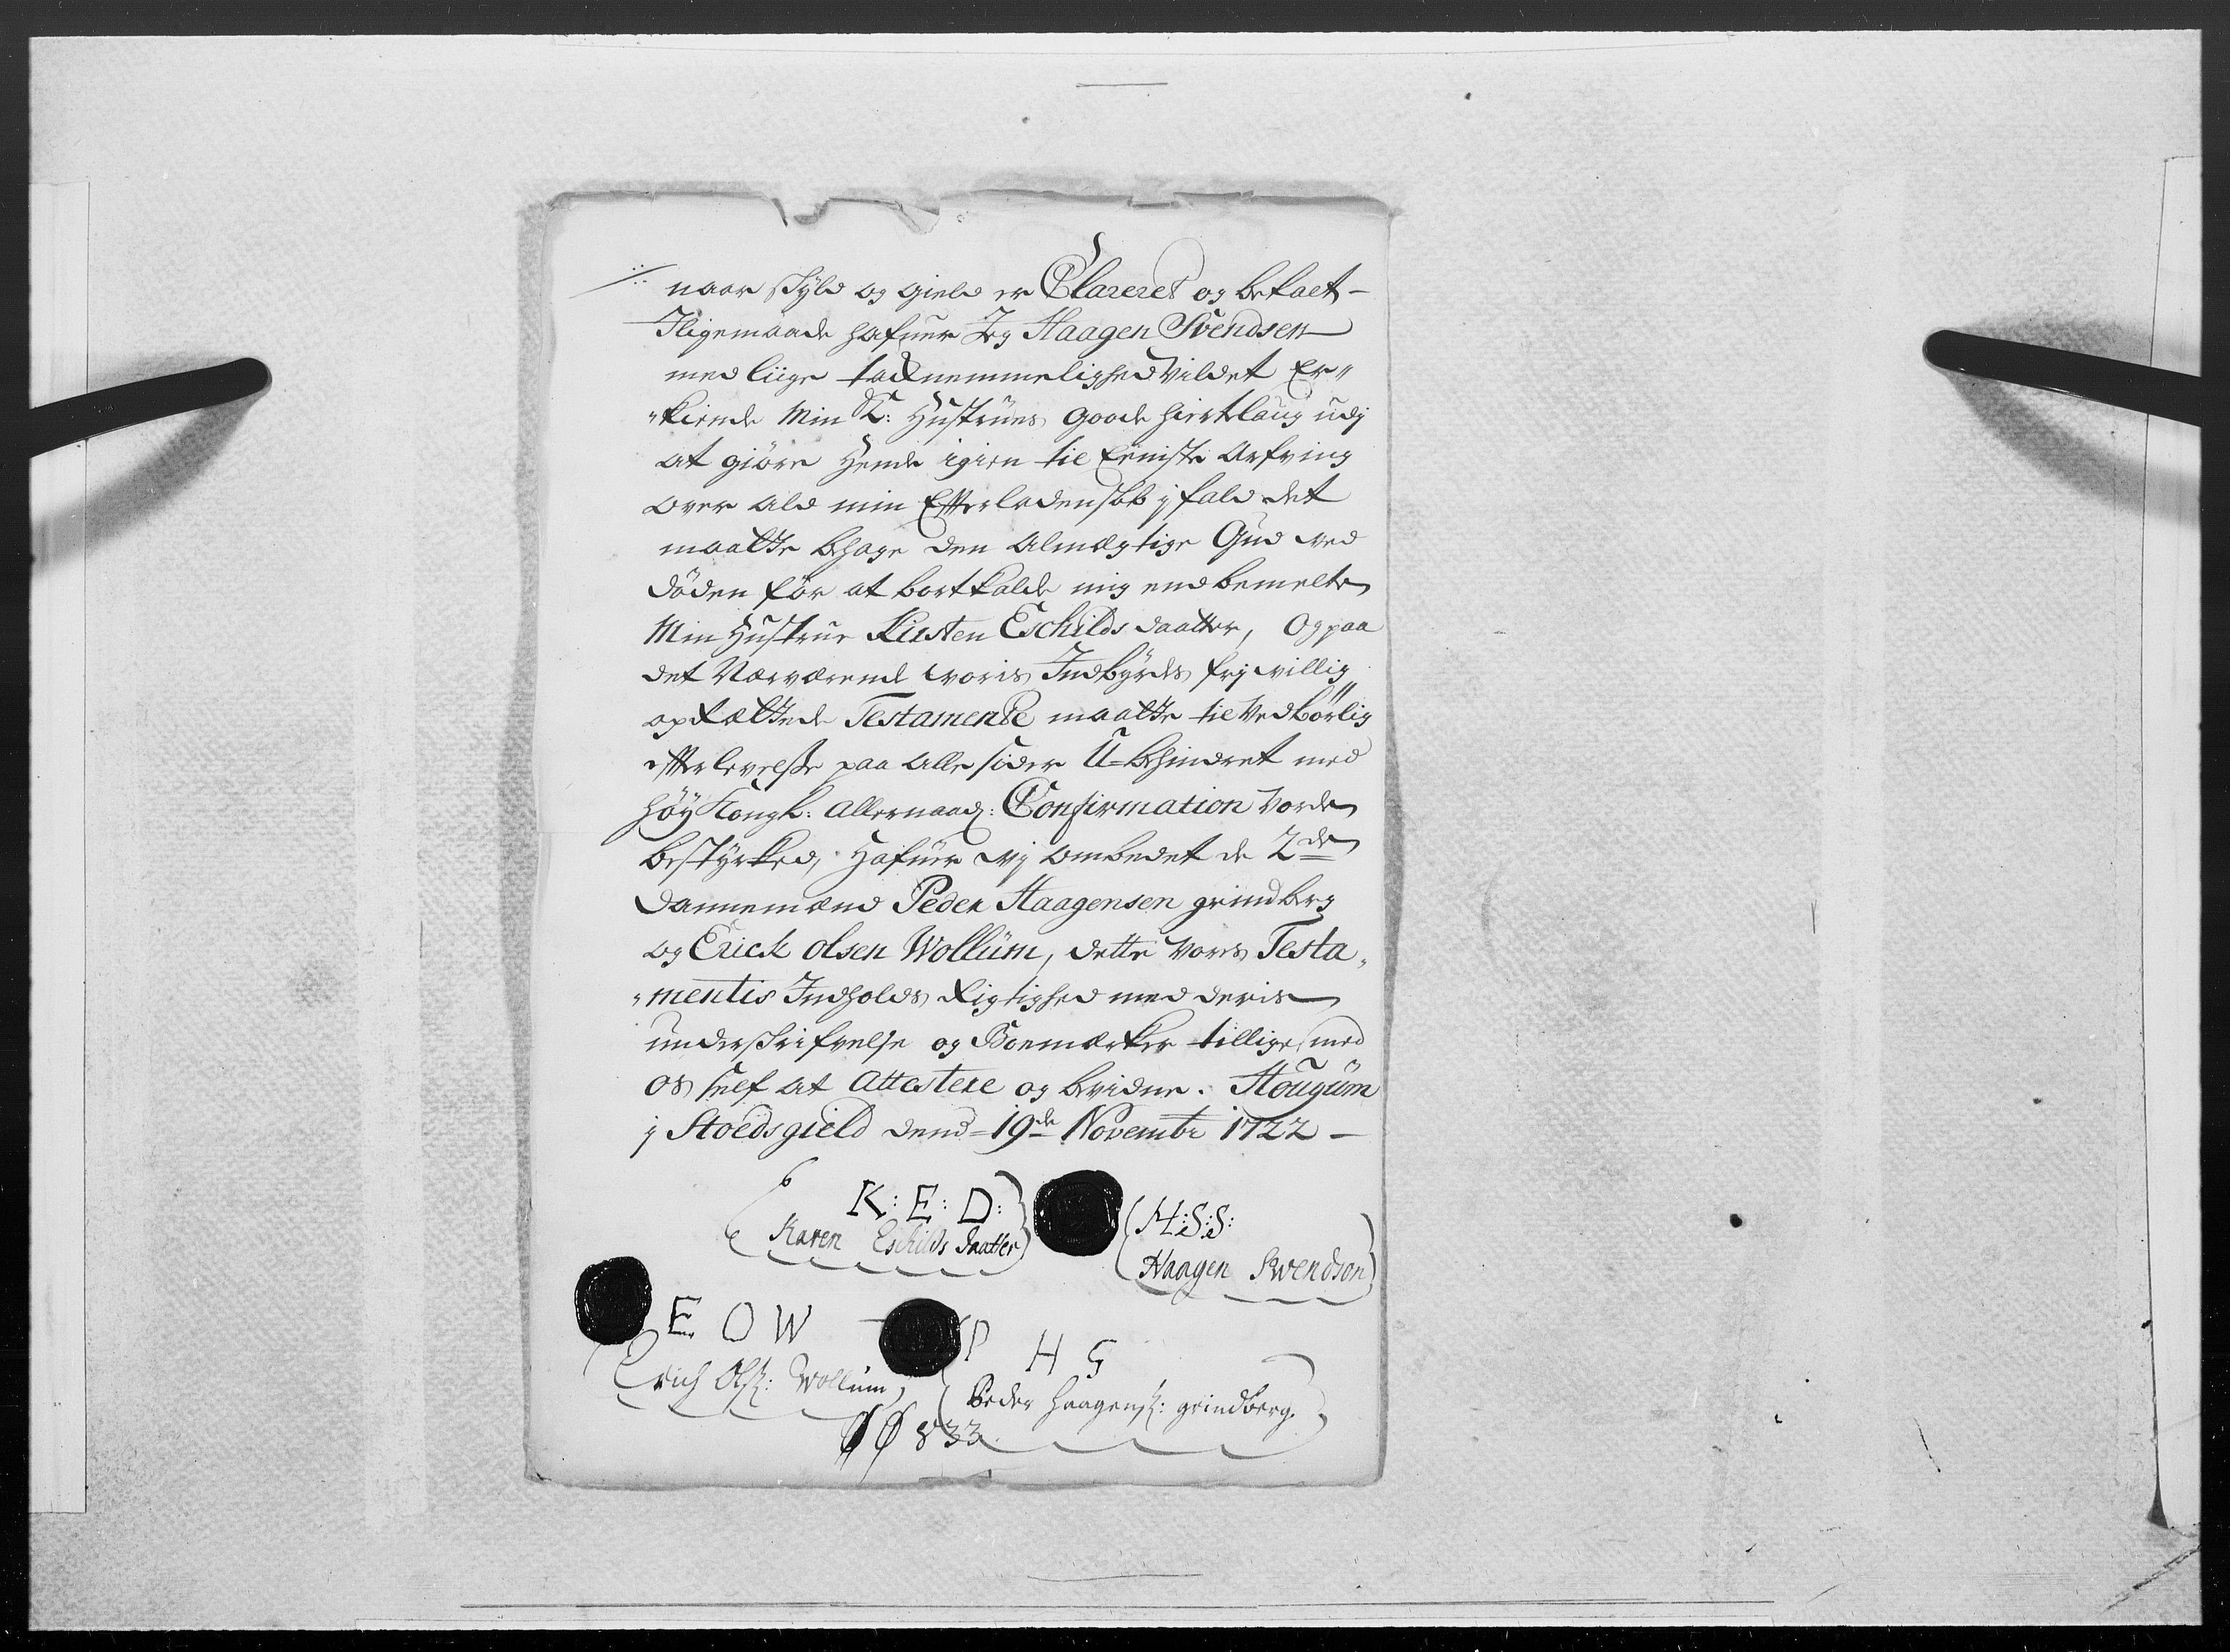 naar skyld og gield er Clareret og betalt -
Iligemaade hafuer Jeg Haagen Svendsen
med liige tacknemmelighed vildet Er„
„kiende Min K: Hustrues goode hiertelaug udj
at giöre Hende igien til Eeniste Arfving
over ald min Efterladenskab j fald det
maatte behage den Almægtige Gud ved
döden för at bortkalde mig end bemelte
Min Hustrue Kirsten Eschilds daatter, Og paa
det Nærværende voris Indbyrdes frjvillig
oprættede Testamente maatte til Vedbörlig
efterlevelsse paa alle sider U-behindret med
höy Kongl: allernaad: Confirmation vorde
bestyrked, Hafuer vj ombedet de 2de
Dannemænd Peder Haagensen grindberg
og Erick olsen Wollüm, dette voris Testa„
„mentis Indholds Rigtighed med deris
underskrifvelse og Boemærker tillige med
os self at Attestere og bevidne. Hougüm
j Stoedsgield dend 19de Novembr 1722 -
K: E: D:
Karen Eschilds daatter
H: S: S:
Haagen Swendson
E O W
Erich Olss: Wollum
P H G
Peder Haagenss: grindberg.
833